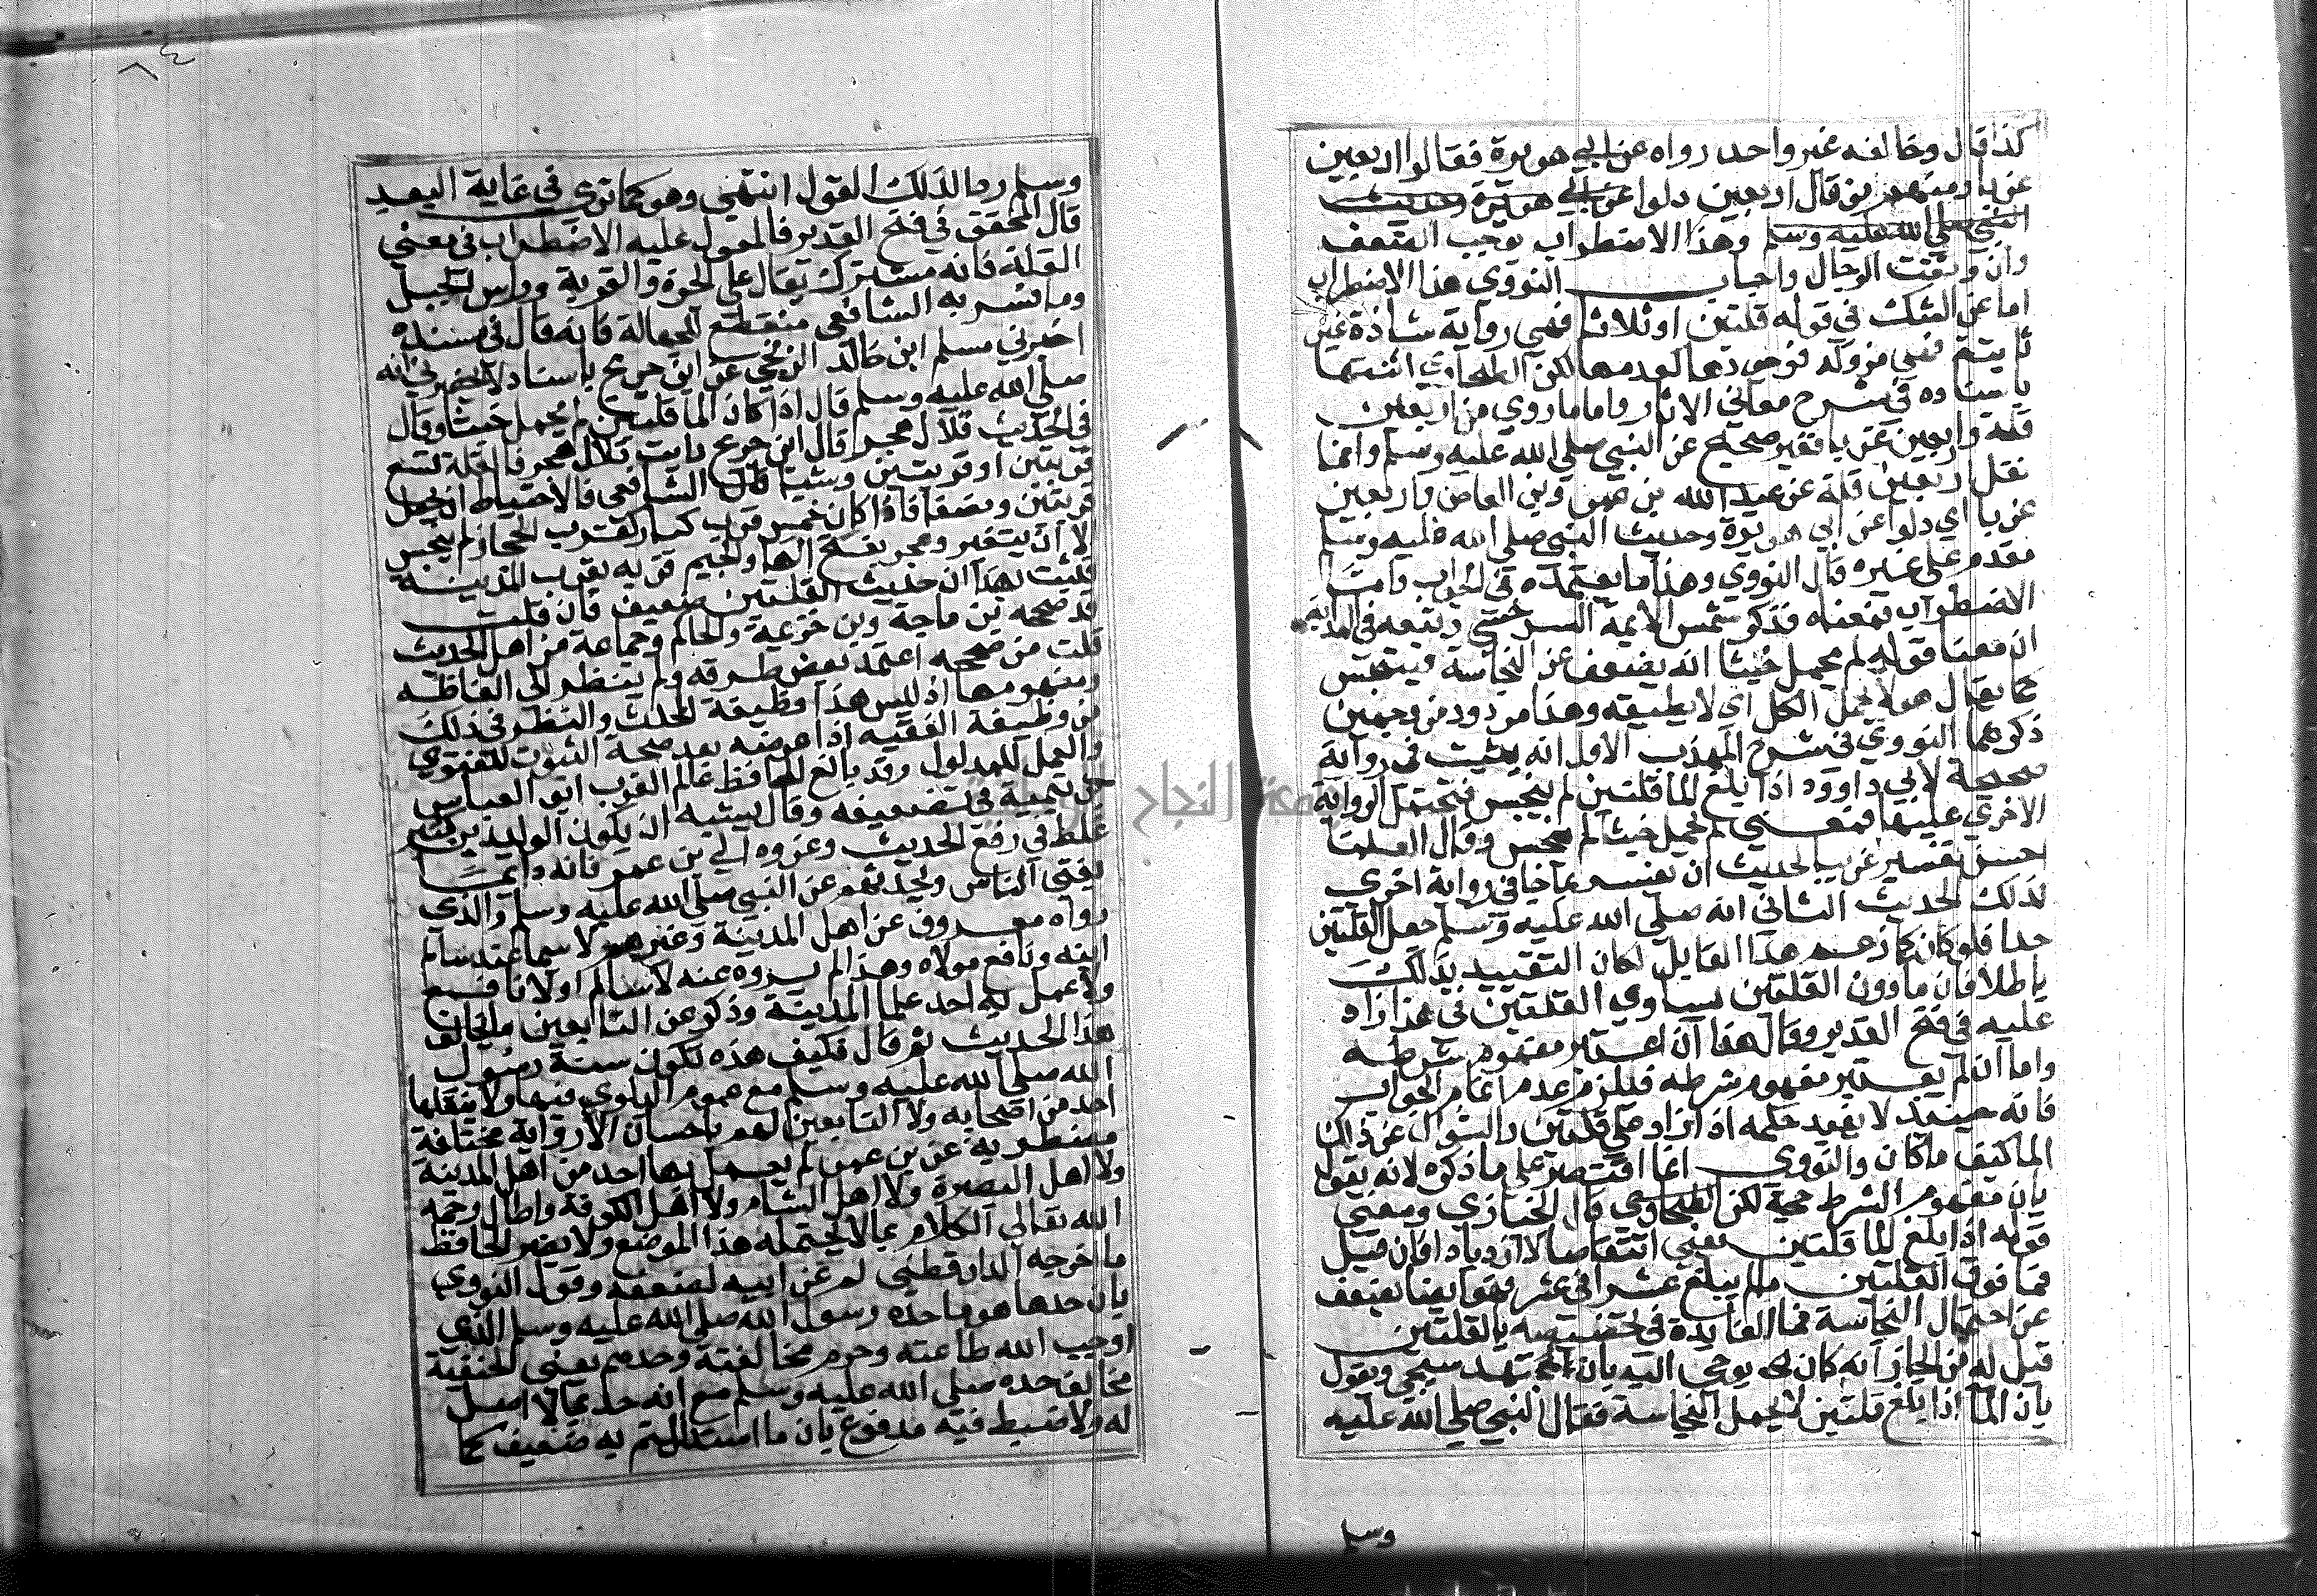 كذا قال وخالفه غير واحد رواه عن ابي هريرة فقالوا اربعين
غربا ومنهم من قال اربعين دلوا عن ابي هريرة وحديث
النبي صلي الله عليه وسلم وهذا الاضطراب يوجب الضعف
وان وثقت الرجال واجاب النووي هذا الاضطراب
اما عن الشك في قوله قلتين او ثلاثا فهي رواية شاذة غير
ثابتة فهي متروكة فوجودها كعدمها لكن الطحاوي اثبتها
باسناده في شرح معاني الاثار واما ما روي من اربعين
قلة واربعين غربا فغير صحيح عن النبي صلي الله عليه وسلم وانما
نقل اربعين قلة عن عبد الله بن عمرو بن العاص واربعين
غربا اي دلوا عن ابي هريرة وحديث النبي صلي الله عليه وسلم
مقدم علي غيره قال النووي وهذا ما يعتمده في الجواب وامتا
الاضطراب بمعناه فذكر شمس الايمه السرخسي وتبعه في الهداية
ان معنا قوله لم يحمل خبثا انه يضعف عن النجاسة فيتنجس
كما يقال هو لا يحمل الكل اي لا يطيقه وهذا مردود من وجهين
ذكرهما النووي في شرح المهذب الاول انه يثبت في رواية
صحيحة لابي داوود اذا بلغ الما قلتين لم ينجس فتحتمل الرواية
الاخري عليها فمعني لم يحمل خبثا لم ينجس وقال العلما
احسن تفسير غريب الحديث ان يفسر بما جا في رواية اخري
لذلك الحديث الثاني انه صلي الله عليه وسلم جعل القلتين
حدا فلو كان كما زعم هذا القايل لكان التقييد بذلك
باطلا فان ما دون القلتين يساوي القلتين في هذا زاد
عليه في فتح القدير وقال هذا ان اعتبر مفهوم شرطه
واما ان لم يعتبر مفهوم شرطه فيلزم عدم اتمام الجواب
فانه حينئذ لا يفيد حكمه اذا زاد علي قلتين والسؤال عن ذلك
الما كيف ما كان والنووي انما اقتصر علي ما ذكره لانه يقول
بان مفهوم الشرط حجة لكن الطحاوي قال الخبازي ومعني
قوله اذا بلغ الما قلتين يعني انتقاصا لا ازديادا فان قيل
فما فوق القلتين ما لم يبلغ عشرا في عشر فهو ايضا يضعف
عن احتمال النجاسة فما الفايدة في تخصيصه بالقلتين
قيل له من الجائز انه كان يوحي اليه بان مجتهد سيجي ويقول
بان الما اذا بلغ قلتين لا يحمل النجاسة فقال النبي صلي الله عليه
وسلم
وسلم ردا لذلك القول انتهي وهو كما تري في غاية البعد
قال المحقق في فتح القدير فالمعول عليه الاضطراب في معني
القلة فانه مشترك يقال علي الجرة والقربة وراس الجبل
وما فسر به الشافعي منقطع للجهالة فانه قال في مسنده
اخبرني مسلم ابن خالد الزنجي عن ابن جريج باسناد لا يحضرني انه
صلي الله عليه وسلم قال اذا كان الما قلتين لم يحمل خبثا وقال
في الحديث قلال هجر قال ابن جريج رايت قلال هجر فالقلة تسع
قربتين او قربتين وشيئا قال الشافعي فالاحتياط ان يجعل
قربتين ونصفا فاذا كان خمس قرب كبار كقرب الحجاز لم ينجس
الا ان يتغير وهجر بفتح الها والجيم قرية بقرب المدينة
فيثبت بهذا ان حديث القلتين ضعيف فان قلت
قد صححه بن ماجة وبن خزيمة والحاكم وجماعة من اهل الحديث
قلت من صححه اعتمد بعض طرقه ولم ينظر الي الفاظه
ومفهومها اذ ليس هذا وظيفة الحدث والنظر في ذلك
من وظيفة الفقيه اذ غرضه بعد صحة الثبوت للفتوي
والعمل للمدلول وقد بالغ للحافظ عالم القرب ابو العباس
بن تيمية في تضعيفه وقال يشبه ان يكون الوليد بن كثير
غلط في رفع الحديث وعزوه الي بن عمر فانه دايما
يفتي الناس ويحدثهم عن النبي صلي الله عليه وسلم والذي
رواه معروف عن اهل المدينة وغيرهم لا سيما عند سالم
ابنه ونافع مولاه وهذا لم يروه عنه لا سالم اولا نافع
ولا عمل به احد علما المدينة وذكر عن التابعين ما يخالف
هذا الحديث ثم قال فكيف هذه تكون سنة رسول
الله صلي الله عليه وسلم مع عموم البلوي فيها ولا ينقلها
احد من اصحابه ولا التابعين لهم باحسان الا رواية مختلفة
مضطربة عن بن عمر لم يعمل بها احد من اهل المدينة
ولا اهل البصرة ولا اهل الشام ولا اهل الكوفة واطال رحمه
الله تعالي الكلام بما لا يحتمله هذا الموضع ولا يضر الحافظ
ما اخرجه الدارقطني لم عن ابيه لضعفه وقول النووي
بان حدها هو ما حده رسول الله صلي الله عليه وسلم الذي
اوجب الله طاعته وحرم مخالفته وحدهم يعني الحنفية
مخالف حده صلي الله عليه وسلم مع انه حد بما لا اصل
له ولا ضبط فيه مدفوع بان ما استدللتم به ضعيف كما